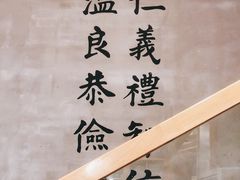 仁義禮智信
溫良恭儉